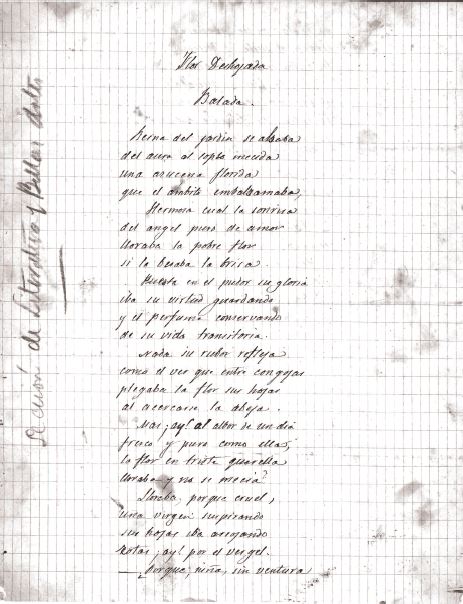 Flor Deshojada
Balada.
Reina del jardin se alzaba
del aura al soplo mecida
una azucena florida
que el ambito embalsamaba,
Hermosa cual la sonrisa
del angel puro de amor
lloraba la pobre flor
si la besaba la brisa.
Puesta en el pudor su gloria
iba su virtud guardando
y el perfume conservando
de su vida transitoria.
Nada su rubor refleja
como el ver que entre congojas
plegaba la flor sus hojas
al acercarse la abeja.
Mas ¡ay! al albor de un dia
fresco y puro como ella,
la flor en triste querella
lloraba y no se mecia
Lloraba porque cruel,
una virgen suspirando
sus hojas iba arrojando
rotas ¡ay! por el vergel.
— ¿Porque, niña, sin ventura
Sección de Literatura y Bellas Artes